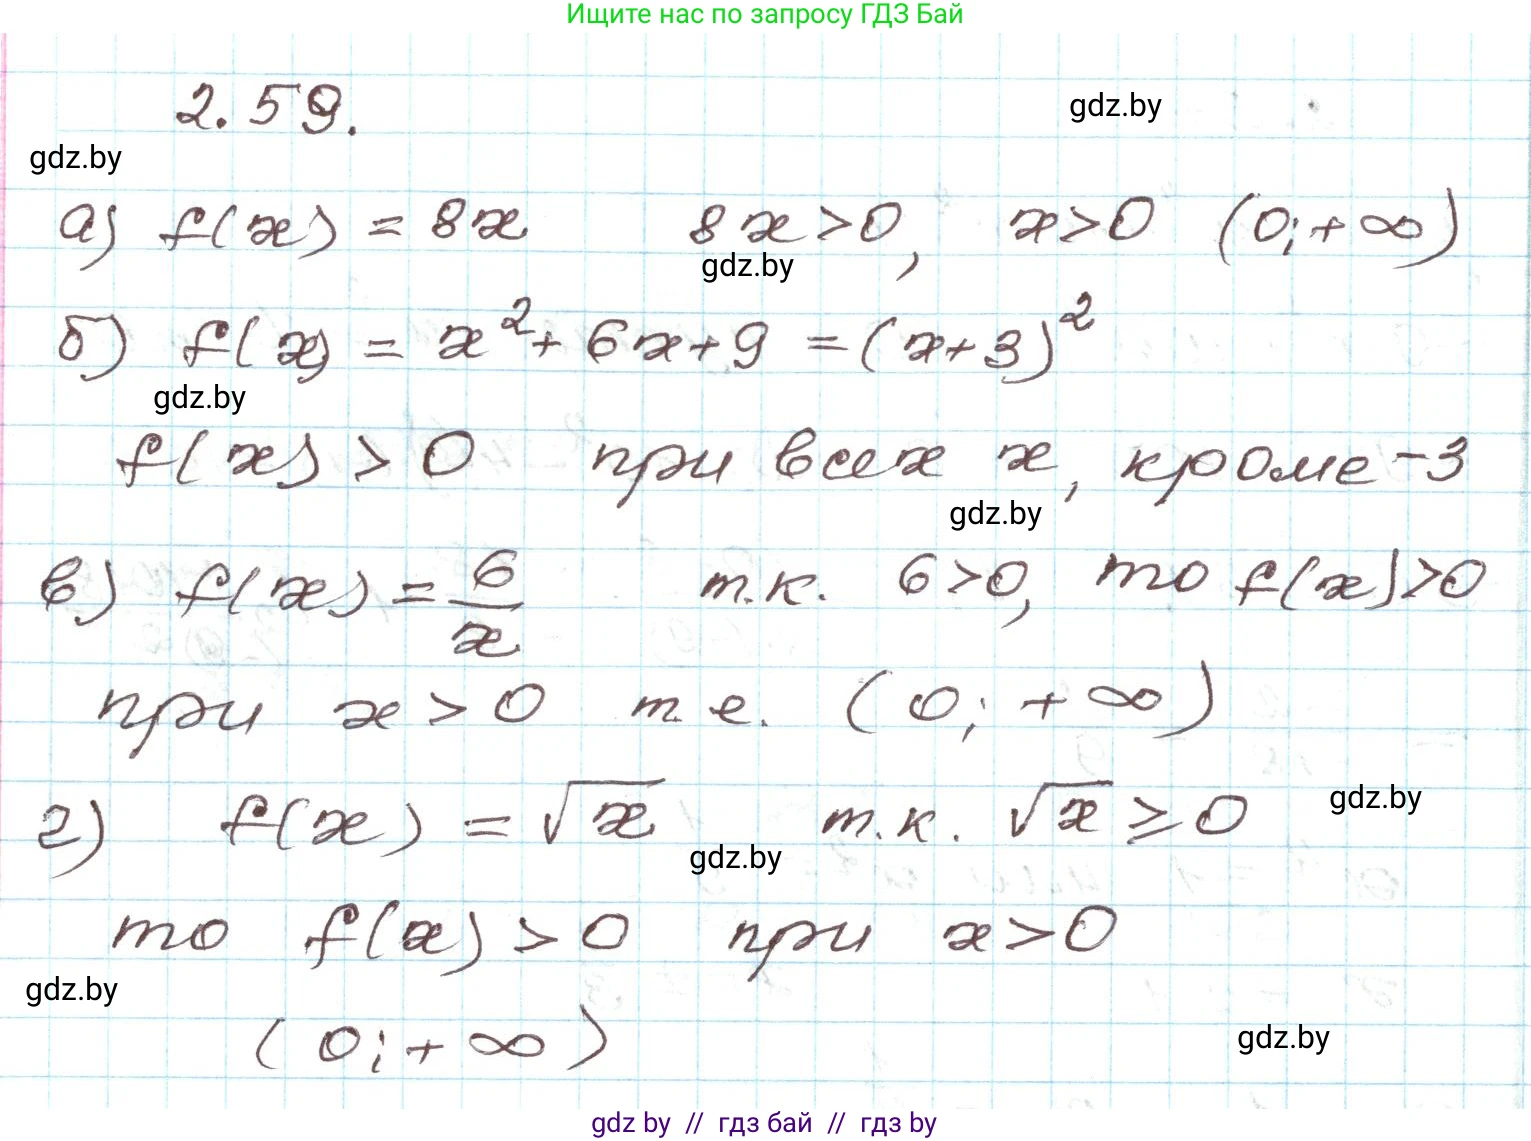 Ищите нас по запросу ГДЗ Бай
2.59.
gdz.by
gdz.by
а) f(x) = 8x 8x>0, x>0 (0;+∞)
gdz.by
б) f(x) = x²+6x+9 =(x+3)²
gdz.by
f(x) > 0 при всех x, кроме -3
gdz.by
в) f(x) = 6/x т.к. 6>0, то f(x)>0
при x > 0 т.е. (0; +∞)
gdz.by
г) f(x) = √x т.к. √x ≥ 0
gdz.by
то f(x) > 0 при x > 0
gdz.by
(0;+∞)
gdz.by
gdz.by // гдз бай // гдз by